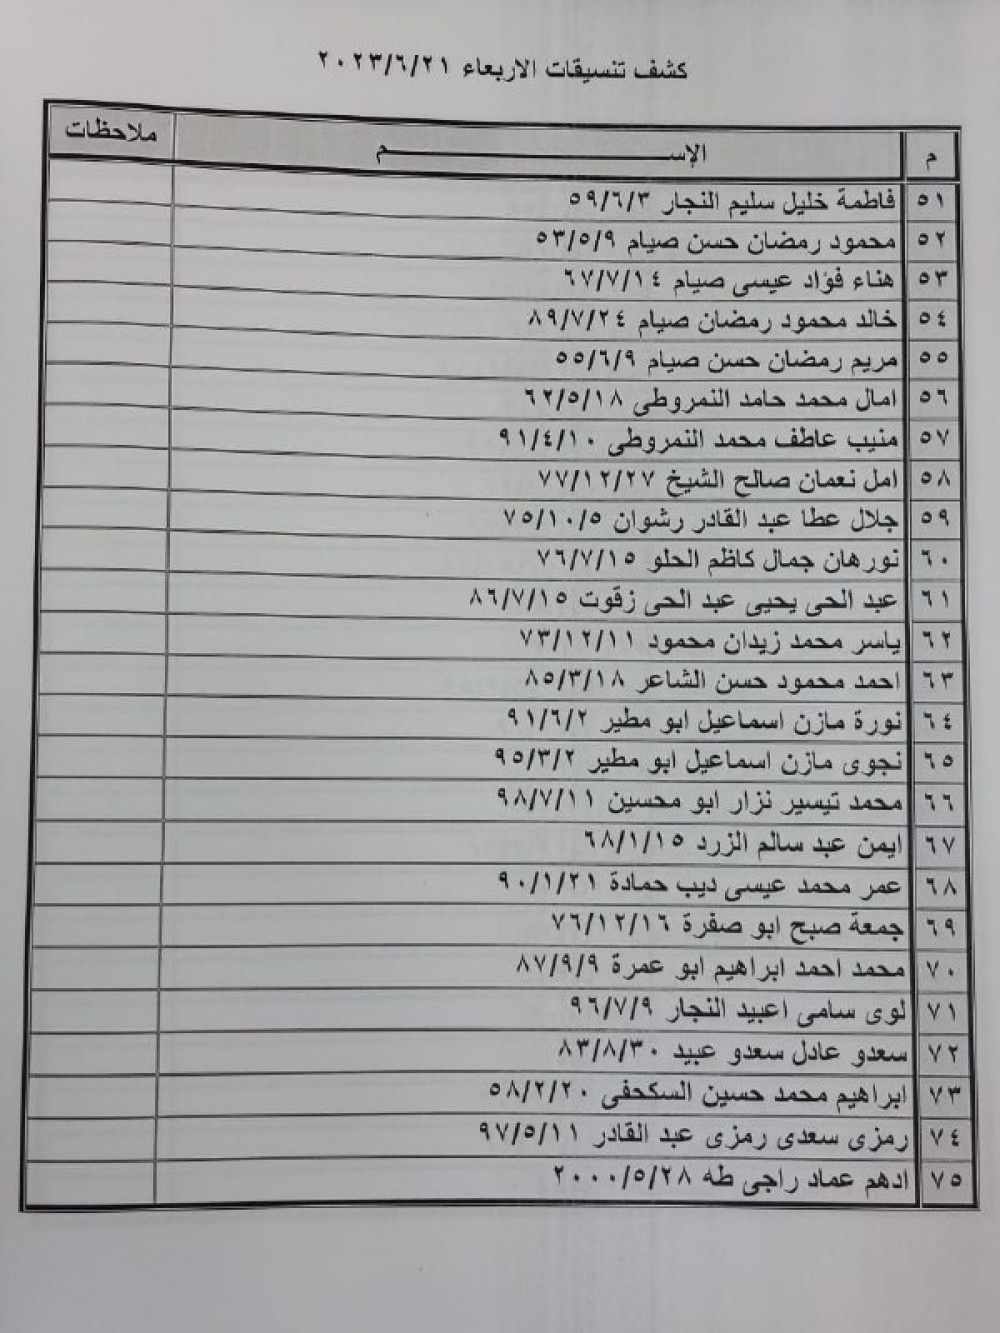 كشف تنسيقات الاربعاء ٢٠٢٣/٦/٢١
م الإســـــــــــــــــم ملاحظات
٥١ فاطمة خليل سليم النجار ٥٩/٦/٣
٥٢ محمود رمضان حسن صيام ٥٣/٥/٩
٥٣ هناء فؤاد عيسى صيام ٦٧/٧/١٤
٥٤ خالد محمود رمضان صيام ٨٩/٧/٢٤
٥٥ مريم رمضان حسن صيام ٥٥/٦/٩
٥٦ امال محمد حامد النمروطى ٦٢/٥/١٨
٥٧ منيب عاطف محمد النمروطى ٩١/٤/١٠
٥٨ امل نعمان صالح الشيخ ٧٧/١٢/٢٧
٥٩ جلال عطا عبد القادر رشوان ٧٥/١٠/٥
٦٠ نورهان جمال كاظم الحلو ٧٦/٧/١٥
٦١ عبد الحى يحيى عبد الحى زقوت ٨٦/٧/١٥
٦٢ ياسر محمد زيدان محمود ٧٣/١٢/١١
٦٣ احمد محمود حسن الشاعر ٨٥/٣/١٨
٦٤ نورة مازن اسماعيل ابو مطير ٩١/٦/٢
٦٥ نجوى مازن اسماعيل ابو مطير ٩٥/٣/٢
٦٦ محمد تيسير نزار ابو محسين ٩٨/٧/١١
٦٧ ايمن عبد سالم الزرد ٦٨/١/١٥
٦٨ عمر محمد عيسى ديب حمادة ٩٠/١/٢١
٦٩ جمعة صبح ابو صفرة ٧٦/١٢/١٦
٧٠ محمد احمد ابراهيم ابو عمرة ٨٧/٩/٩
٧١ لوى سامى اعبيد النجار ٩٦/٧/٩
٧٢ سعدو عادل سعدو عبيد ٨٣/٨/٣٠
٧٣ ابراهيم محمد حسين السكحفى ٥٨/٢/٢٠
٧٤ رمزى سعدى رمزى عبد القادر ٩٧/٥/١١
٧٥ ادهم عماد راجى طه ٢٠٠٠/٥/٢٨